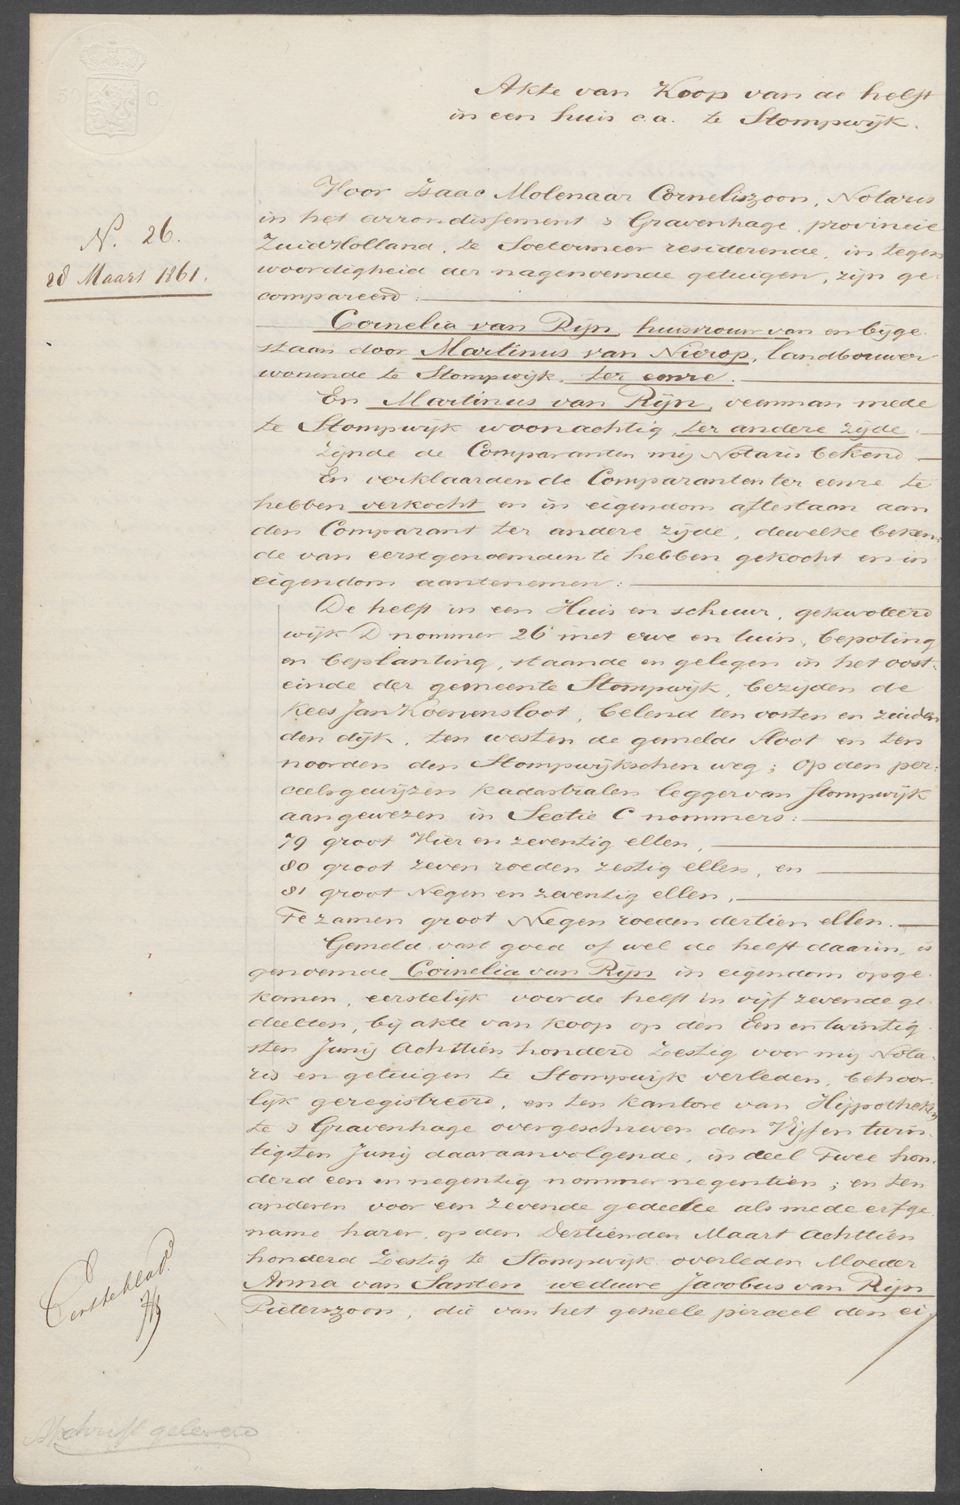 50 C.
Akte van Koop van de helft
in een huis c.a. te Stompwijk.
N. 26.
28 Maart 1861.
Voor Isaac Molenaar Corneliszoon, Notaris
in het arrondissement s Gravenhage, provincie
Zuid Holland, te Soetermeer residerende, in tegen
woordigheid der nagenoemde getuigen, zijn ge-
compareerd:
Cornelia van Rijn, huisvrouw van en bijge-
staan door Martinus van Nierop, landbouwer
wonende te Stompwijk, ter eenre.
En Martinus van Rijn, veenman mede
te Stompwijk woonachtig, ter andere zijde.
Zijnde de Comparanten mij Notaris bekend
En verklaarden de Comparanten ter eenre te
hebben verkocht en in eigendom aftestaan aan
den Comparant ter andere zijde, dewelke beken-
de van eerstgenoemden te hebben gekocht en in
eigendom aantenemen:
De helft in een Huis en schuur, gekwoteerd
wijk D nommer 26 met erve en tuin, bepoting
en beplanting, staande en gelegen in het oost-
einde der gemeente Stompwijk, bezijden de
Kees Jan Koenensloot, belend ten oosten en zuiden
den dijk, ten westen de gemelde sloot en ten
noorden den Stompwijkschen weg; op den per-
ceelsgewijzen kadastralen legger van Stompwijk
aangewezen in Sectie C nommers:
79 groot Vier en zeventig ellen,
80 groot zeven roeden zestig ellen, en
81 groot Negen en zeventig ellen,
Te zamen groot Negen roeden dertien ellen.
Gemeld vast goed of wel de helft daarin, is
genoemde Cornelia van Rijn in eigendom opge-
komen, eerstelijk voor de helft in vijf zevende ge-
deelten, bij akte van koop op den Een en twintig-
sten Junij Achttien honderd Zestig voor mij Nota-
ris en getuigen te Stompwijk verleden, behoor-
lijk geregistreerd, en ten kantore van Hypotheken
te s Gravenhage overgeschreven den Vijf en twin-
tigsten Junij daaraanvolgende, in deel Twee hon-
derd een en negentig nommer negentien; en ten
anderen voor een zevende gedeelte als mede erfge-
name harer, op den Dertienden Maart Achttien
honderd Zestig te Stompwijk overleden Moeder
Anna van Santen weduwe Jacobus van Rijn
Pieterszoon, die van het geheele perceel den ei-
Eerste blad.
Afschrift geleverd